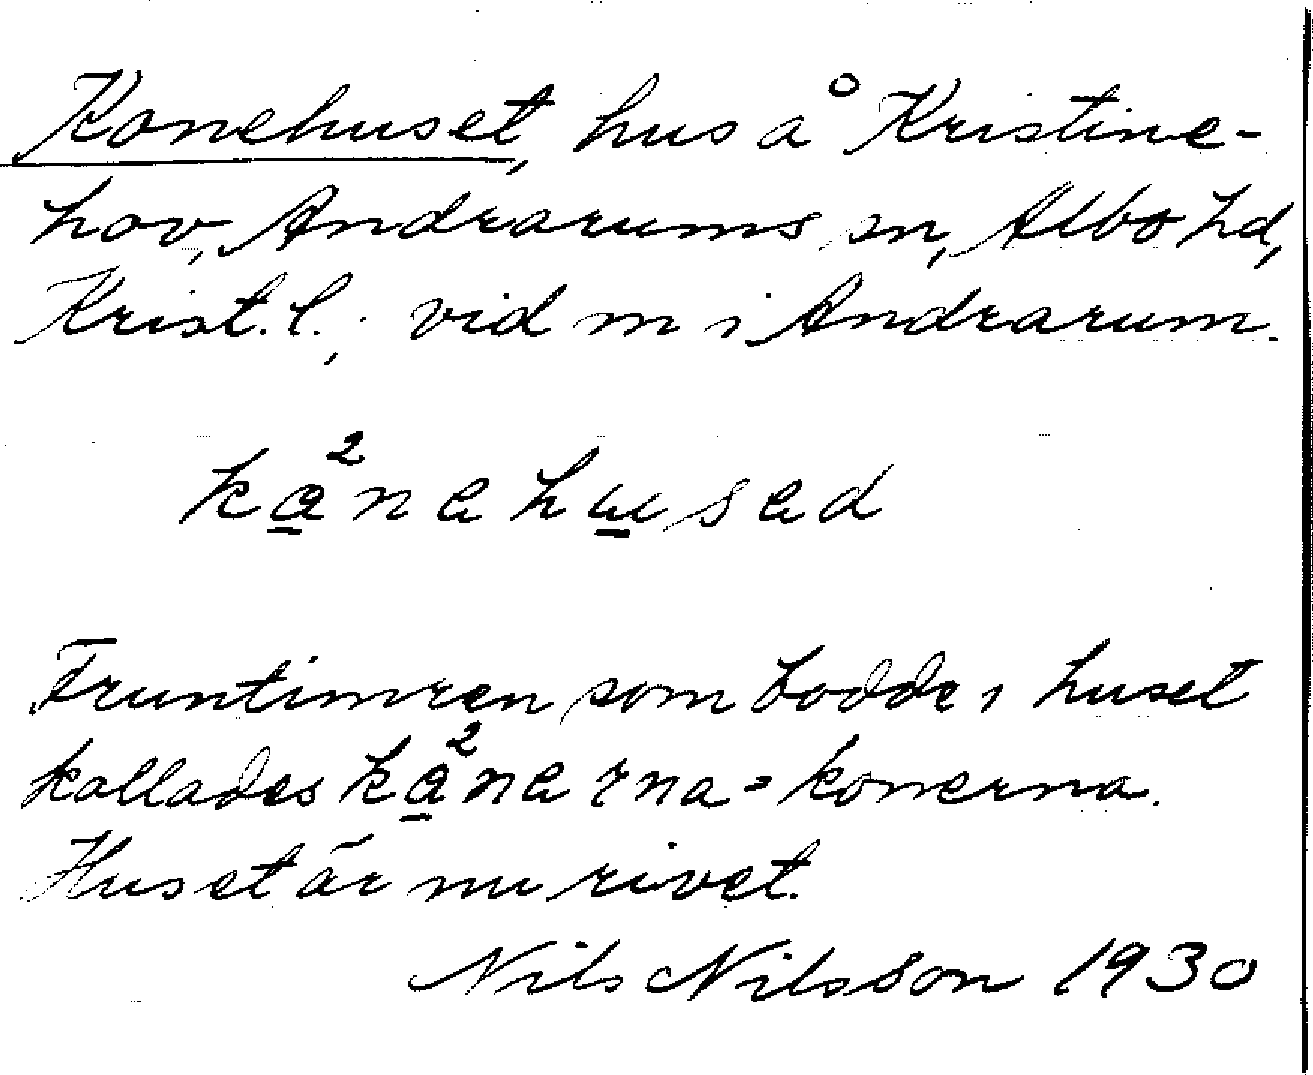 Konehuset, hus å Kristine-
hov, Andrarums sn, Albo hd,
Krist. l., vid m i Andrarum.
Fruntimren som bodde i huset
kallades = konerna.
Huset är nu rivet.
Nils Nilsson 1930